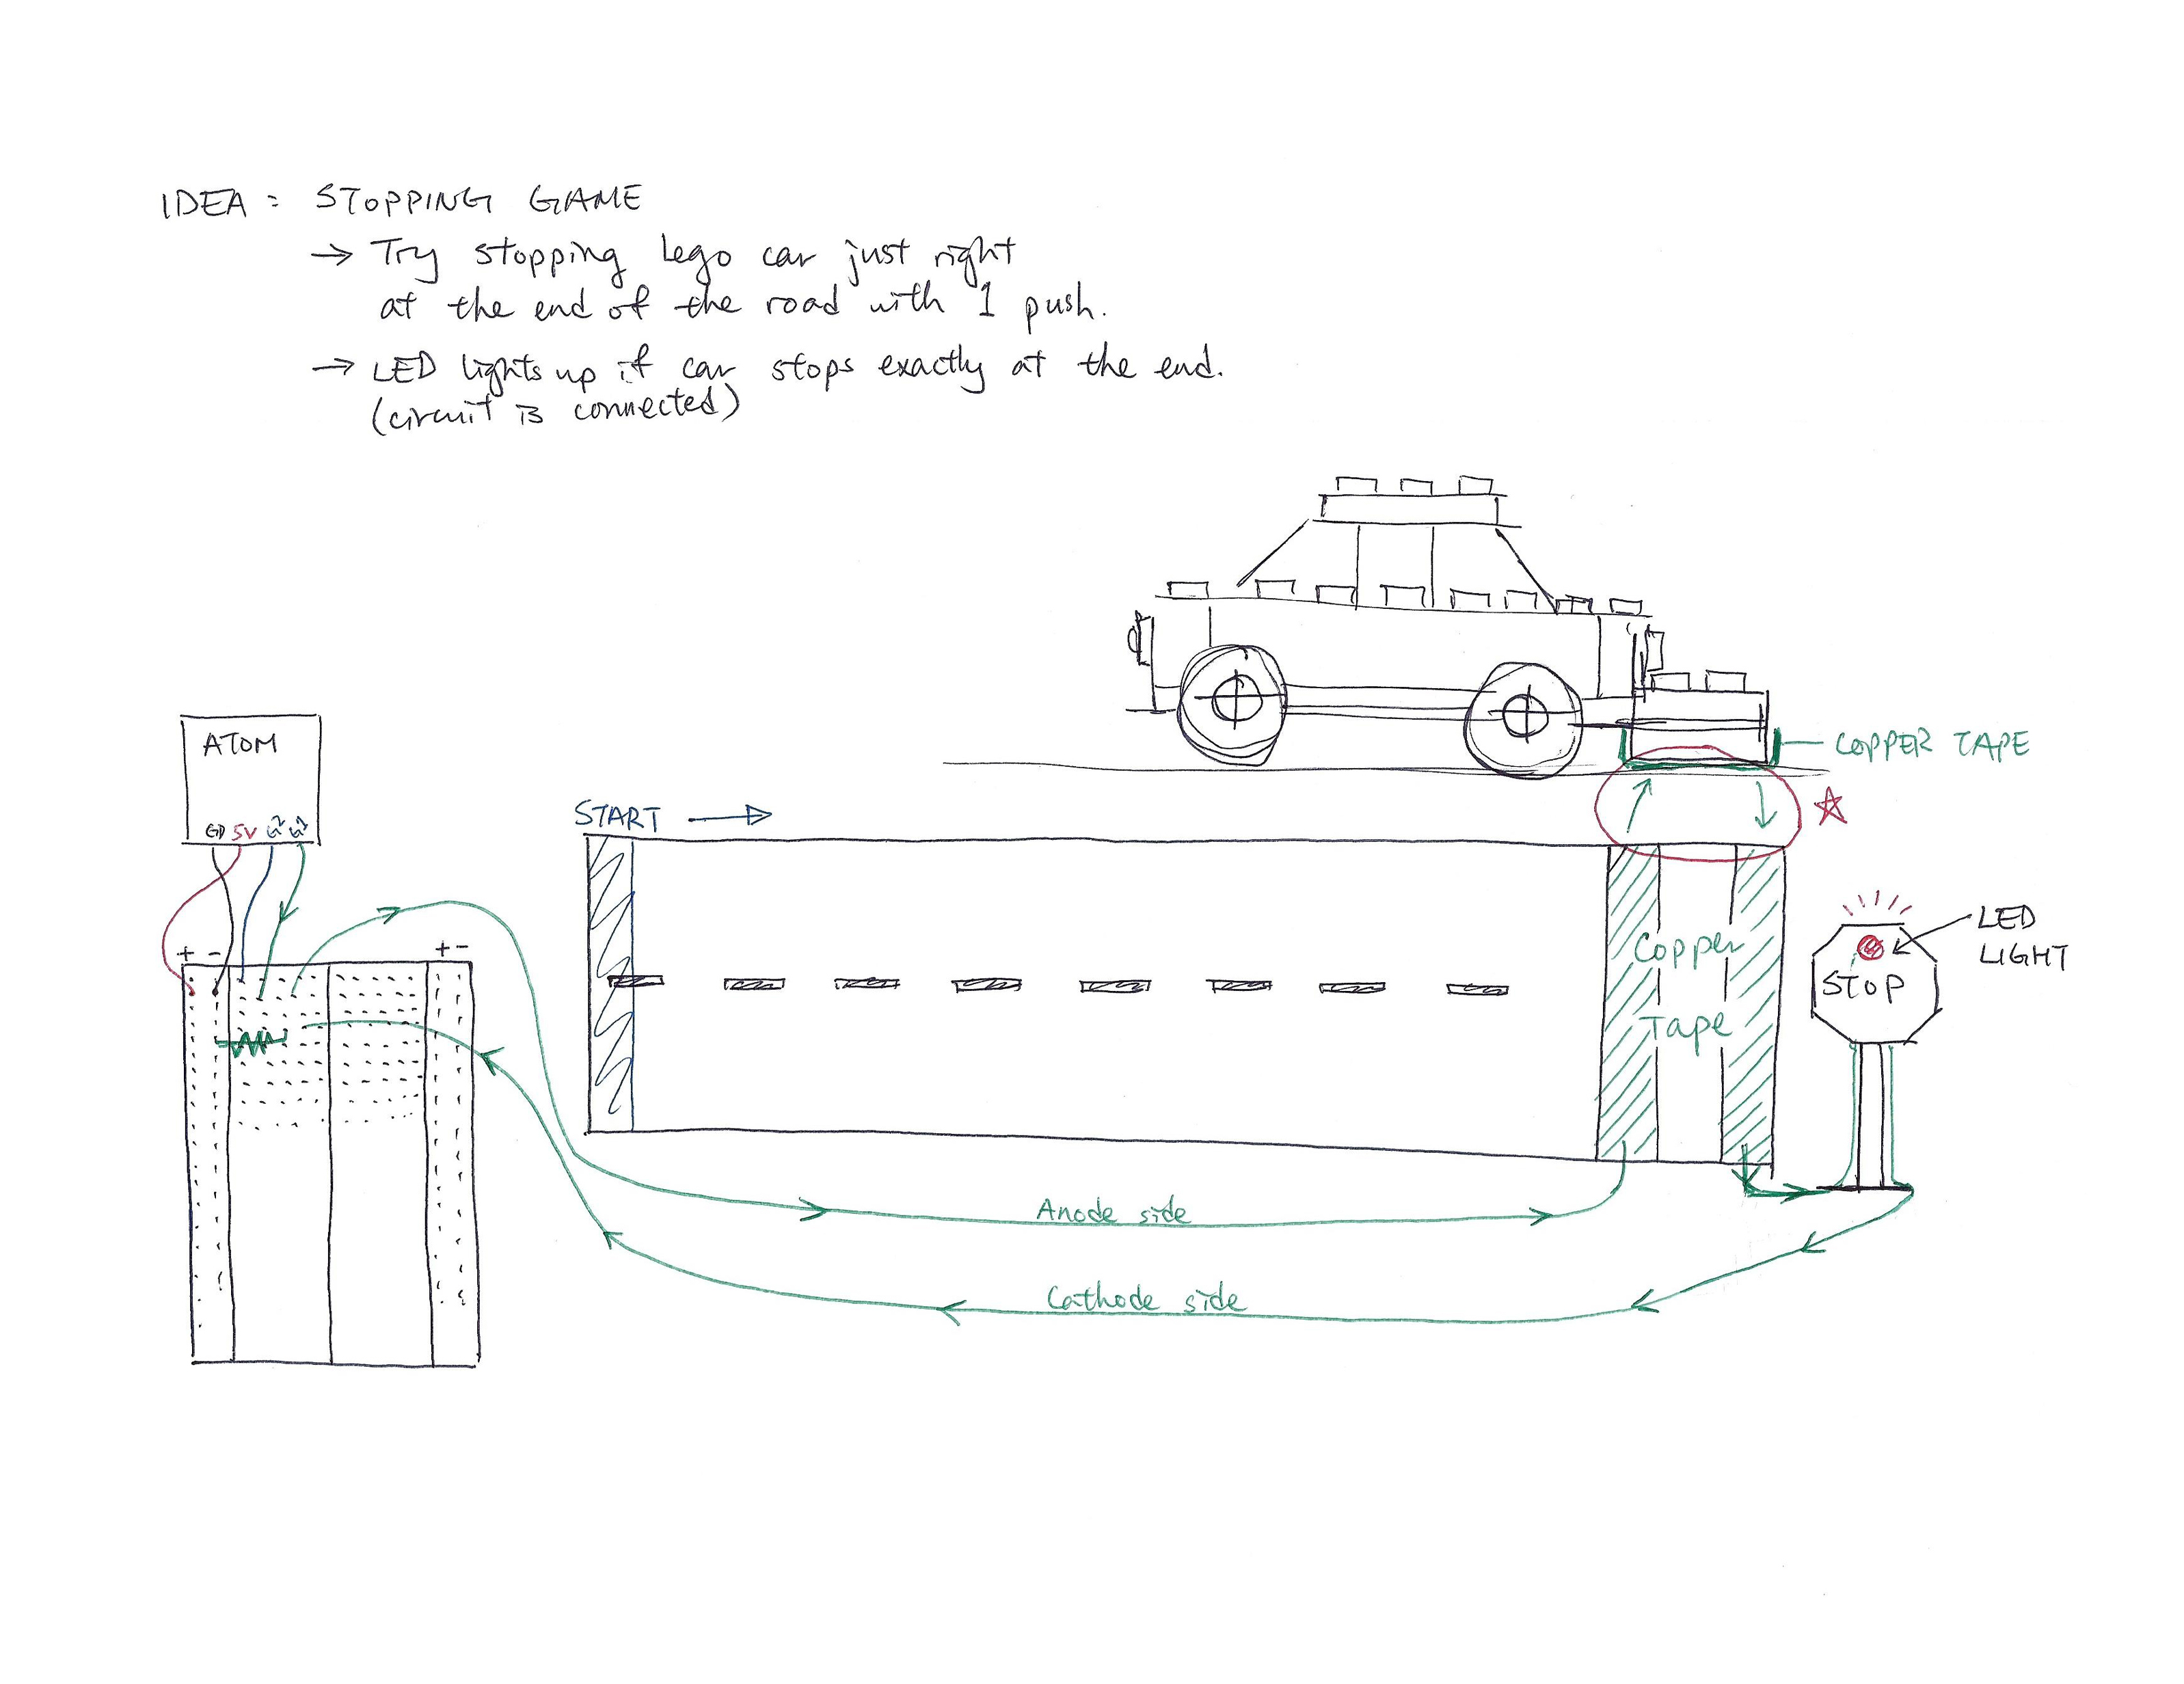 IDEA : STOPPING GAME
→ Try stopping Lego car just right
at the end of the road with 1 push.
→ LED lights up if car stops exactly at the end.
(circuit is connected)
COPPER TAPE
ATOM
GD 5V
START →
+ -
+ -
Copper
Tape
LED
LIGHT
STOP
Anode side
Cathode side